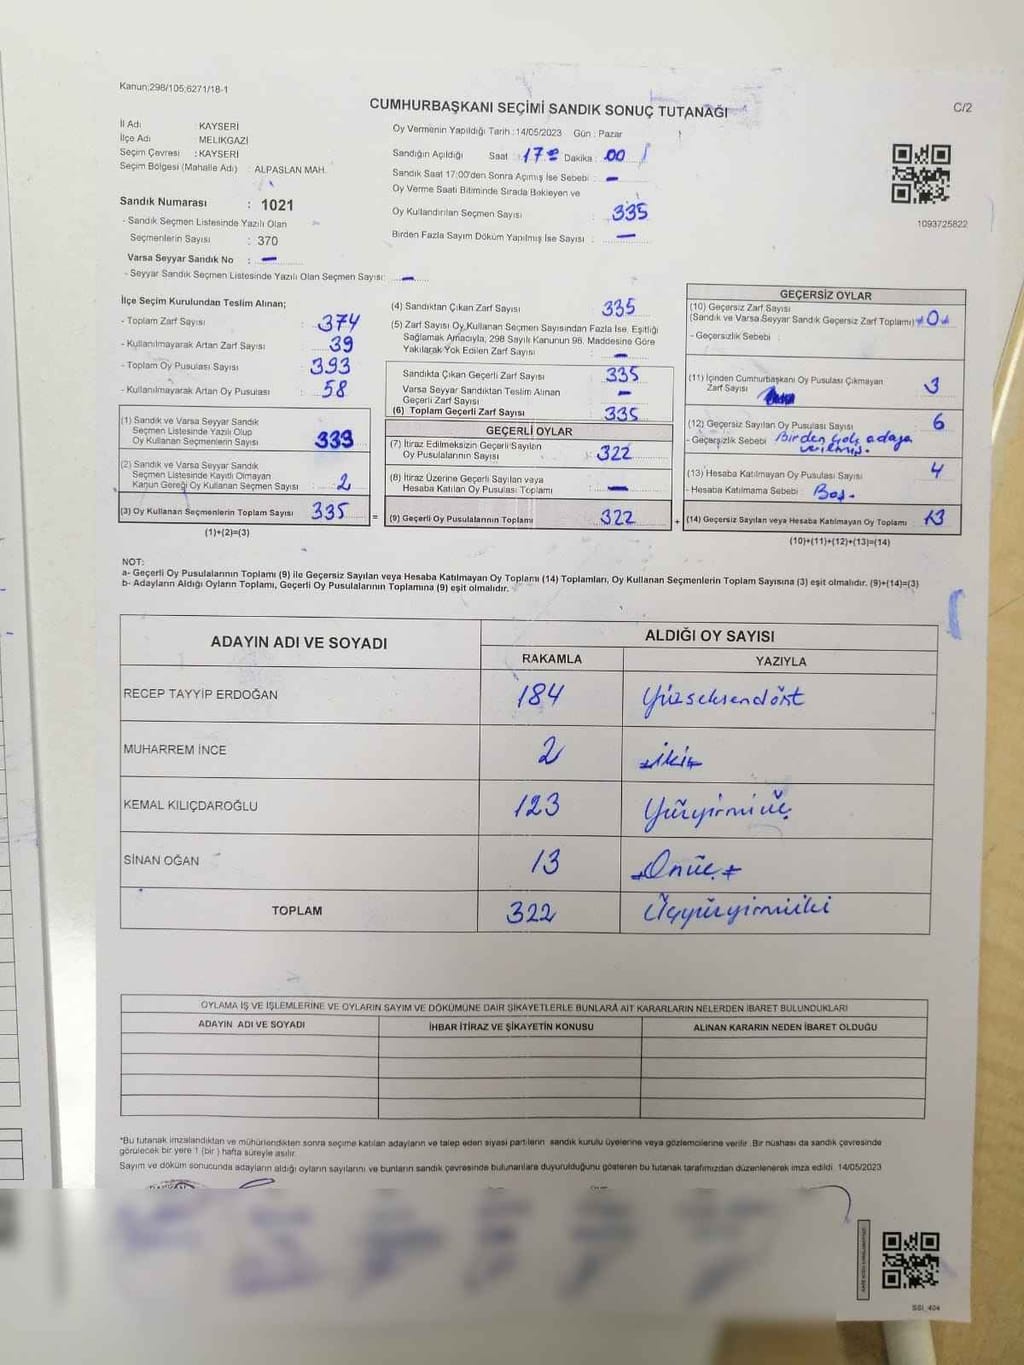 Kanun;298/105;6271/18-1
CUMHURBAŞKANI SEÇİMİ SANDIK SONUÇ TUTANAĞI
C/2
İl Adı KAYSERİ
İlçe Adı MELIKGAZİ
Seçim Çevresi : KAYSERİ
Seçim Bölgesi (Mahalle Adı) : ALPASLAN MAH.
Sandık Numarası : 1021
- Sandık Seçmen Listesinde Yazılı Olan
Seçmenlerin Sayısı : 370
Varsa Seyyar Sandık No : -
- Seyyar Sandık Seçmen Listesinde Yazılı Olan Seçmen Sayısı: -
Oy Vermenin Yapıldığı Tarih :14/05/2023 Gün : Pazar
Sandığın Açıldığı Saat : 17 Dakika : 00
Sandık Saat 17:00'den Sonra Açımış İse Sebebi : -
Oy Verme Saati Bitiminde Sırada Bekleyen ve
Oy Kullandırılan Seçmen Sayısı : 335
Birden Fazla Sayım Döküm Yapılmış İse Sayısı : -
1093725822
İlçe Seçim Kurulundan Teslim Alınan;
- Toplam Zarf Sayısı : 374
- Kullanılmayarak Artan Zarf Sayısı : 39
- Toplam Oy Pusulası Sayısı : 393
- Kullanılmayarak Artan Oy Pusulası : 58
(1) Sandık ve Varsa Seyyar Sandık
Seçmen Listesinde Yazılı Olup
Oy Kullanan Seçmenlerin Sayısı : 333
(2) Sandık ve Varsa Seyyar Sandık
Seçmen Listesinde Kayıtlı Olmayan
Kanun Gereği Oy Kullanan Seçmen Sayısı : 2
(3) Oy Kullanan Seçmenlerin Toplam Sayısı : 335 =
(1)+(2)=(3)
(4) Sandıktan Çıkan Zarf Sayısı 335
(5) Zarf Sayısı Oy Kullanan Seçmen Sayısından Fazla İse, Eşitliği
Sağlamak Amacıyla, 298 Sayılı Kanunun 98. Maddesine Göre
Yakılarak Yok Edilen Zarf Sayısı : -
Sandıkta Çıkan Geçerli Zarf Sayısı : 335
Varsa Seyyar Sandıktan Teslim Alınan
Geçerli Zarf Sayısı : -
(6) Toplam Geçerli Zarf Sayısı : 335
GEÇERLİ OYLAR
(7) İtiraz Edilmeksizin Geçerli Sayılan
Oy Pusulalarının Sayısı : 322
(8) İtiraz Üzerine Geçerli Sayılan veya
Hesaba Katılan Oy Pusulası Toplamı : -
(9) Geçerli Oy Pusulalarının Toplamı : 322 +
GEÇERSİZ OYLAR
(10) Geçersiz Zarf Sayısı
(Sandık ve Varsa Seyyar Sandık Geçersiz Zarf Toplamı) : 0
- Geçersizlik Sebebi :
(11) İçinden Cumhurbaşkanı Oy Pusulası Çıkmayan
Zarf Sayısı 3
(12) Geçersiz Sayılan Oy Pusulası Sayısı 6
- Geçersizlik Sebebi : Birden çok adaya
verilmiş.
(13) Hesaba Katılmayan Oy Pusulası Sayısı 4
- Hesaba Katılmama Sebebi : Boş.
(14) Geçersiz Sayılan veya Hesaba Katılmayan Oy Toplamı 13
(10)+(11)+(12)+(13)=(14)
NOT:
a- Geçerli Oy Pusulalarının Toplamı (9) ile Geçersiz Sayılan veya Hesaba Katılmayan Oy Toplamı (14) Toplamları, Oy Kullanan Seçmenlerin Toplam Sayısına (3) eşit olmalıdır. (9)+(14)=(3)
b- Adayların Aldığı Oyların Toplamı, Geçerli Oy Pusulalarının Toplamına (9) eşit olmalıdır.
ADAYIN ADI VE SOYADI
ALDIĞI OY SAYISI
RAKAMLA YAZIYLA
RECEP TAYYİP ERDOĞAN 184 Yüzseksendört
MUHARREM İNCE 2 -iki-
KEMAL KILIÇDAROĞLU 123 Yüzyirmiüç
SİNAN OĞAN 13 -Onüç-
TOPLAM 322 Üçyüzyirmiiki
OYLAMA İŞ VE İŞLEMLERİNE VE OYLARIN SAYIM VE DÖKÜMÜNE DAİR ŞİKAYETLERLE BUNLARA AİT KARARLARIN NELERDEN İBARET BULUNDUKLARI
ADAYIN ADI VE SOYADI İHBAR İTİRAZ VE ŞİKAYETİN KONUSU ALINAN KARARIN NEDEN İBARET OLDUĞU
*Bu tutanak imzalandıktan ve mühürlendikten sonra seçime katılan adayların ve talep eden siyasi partilerin sandık kurulu üyelerine veya gözlemcilerine verilir. Bir nüshası da sandık çevresinde
görülecek bir yere 1 (bir ) hafta süreyle asılır.
Sayım ve döküm sonucunda adayların aldığı oyların sayılarını ve bunların sandık çevresinde bulunanlara duyurulduğunu gösteren bu tutanak tarafımızdan düzenlenerek imza edildi. 14/05/2023
SSI_404